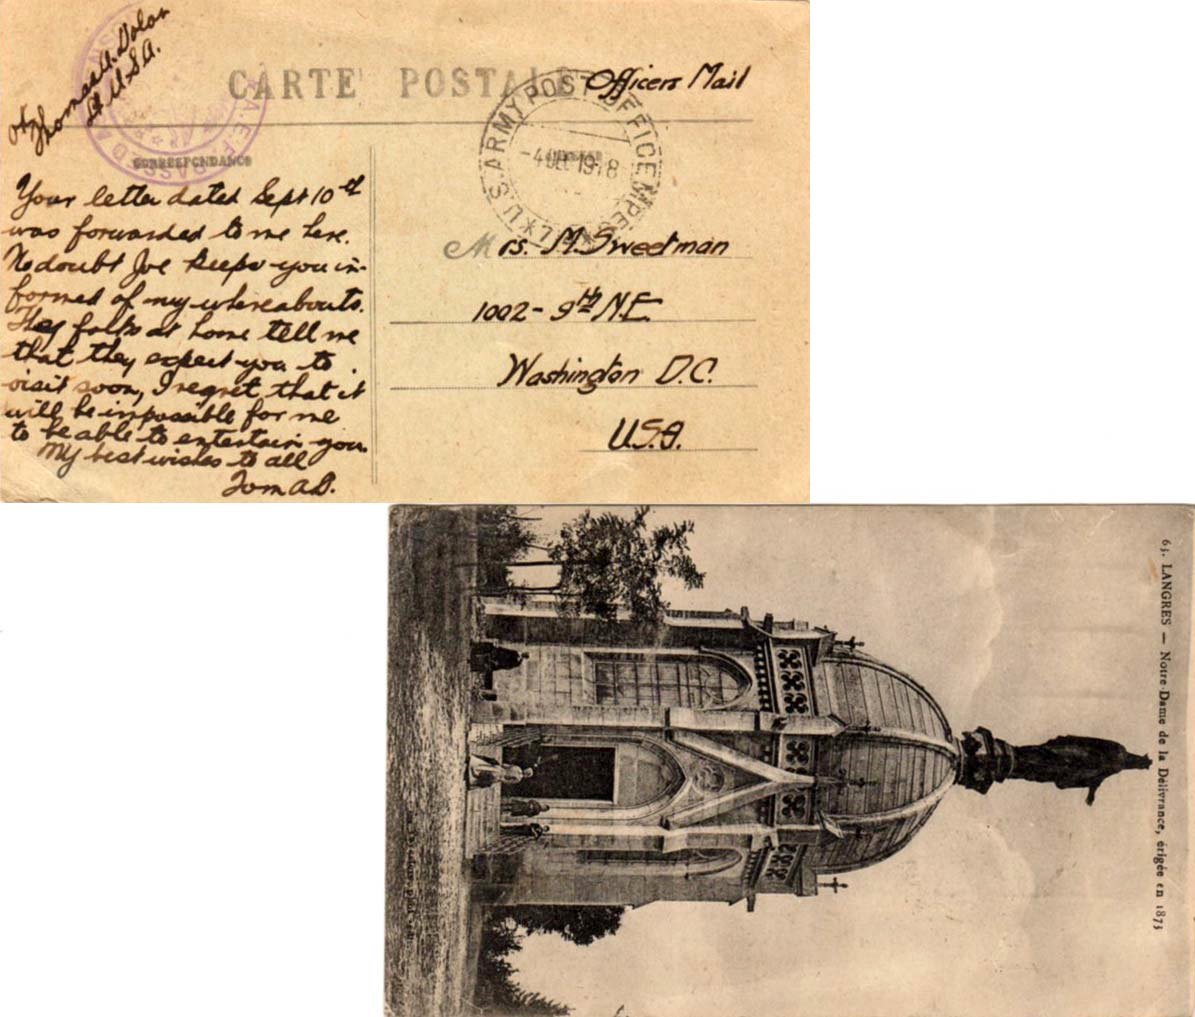 Thomas A. Dolan
Lt. U.S.A.
CARTE POSTALE
Officers Mail
A.E.F. PASSED
CORRESPONDANCE
U.S. ARMY POST OFFICE M.P.E.S.
-4 DEC 1918
Your letter dated Sept 10th
was forwarded to me here.
No doubt Joe keeps you in-
formed of my whereabouts.
They folks at home tell me
that they expect you to
visit soon, I regret that it
will be impossible for me
to be able to entertain you.
My best wishes to all
Tom A.D.
Mrs. M. Sweetman
1002 - 9th N.E.
Washington D.C.
U.S.A.
63. LANGRES — Notre-Dame de la Délivrance, érigée en 1873